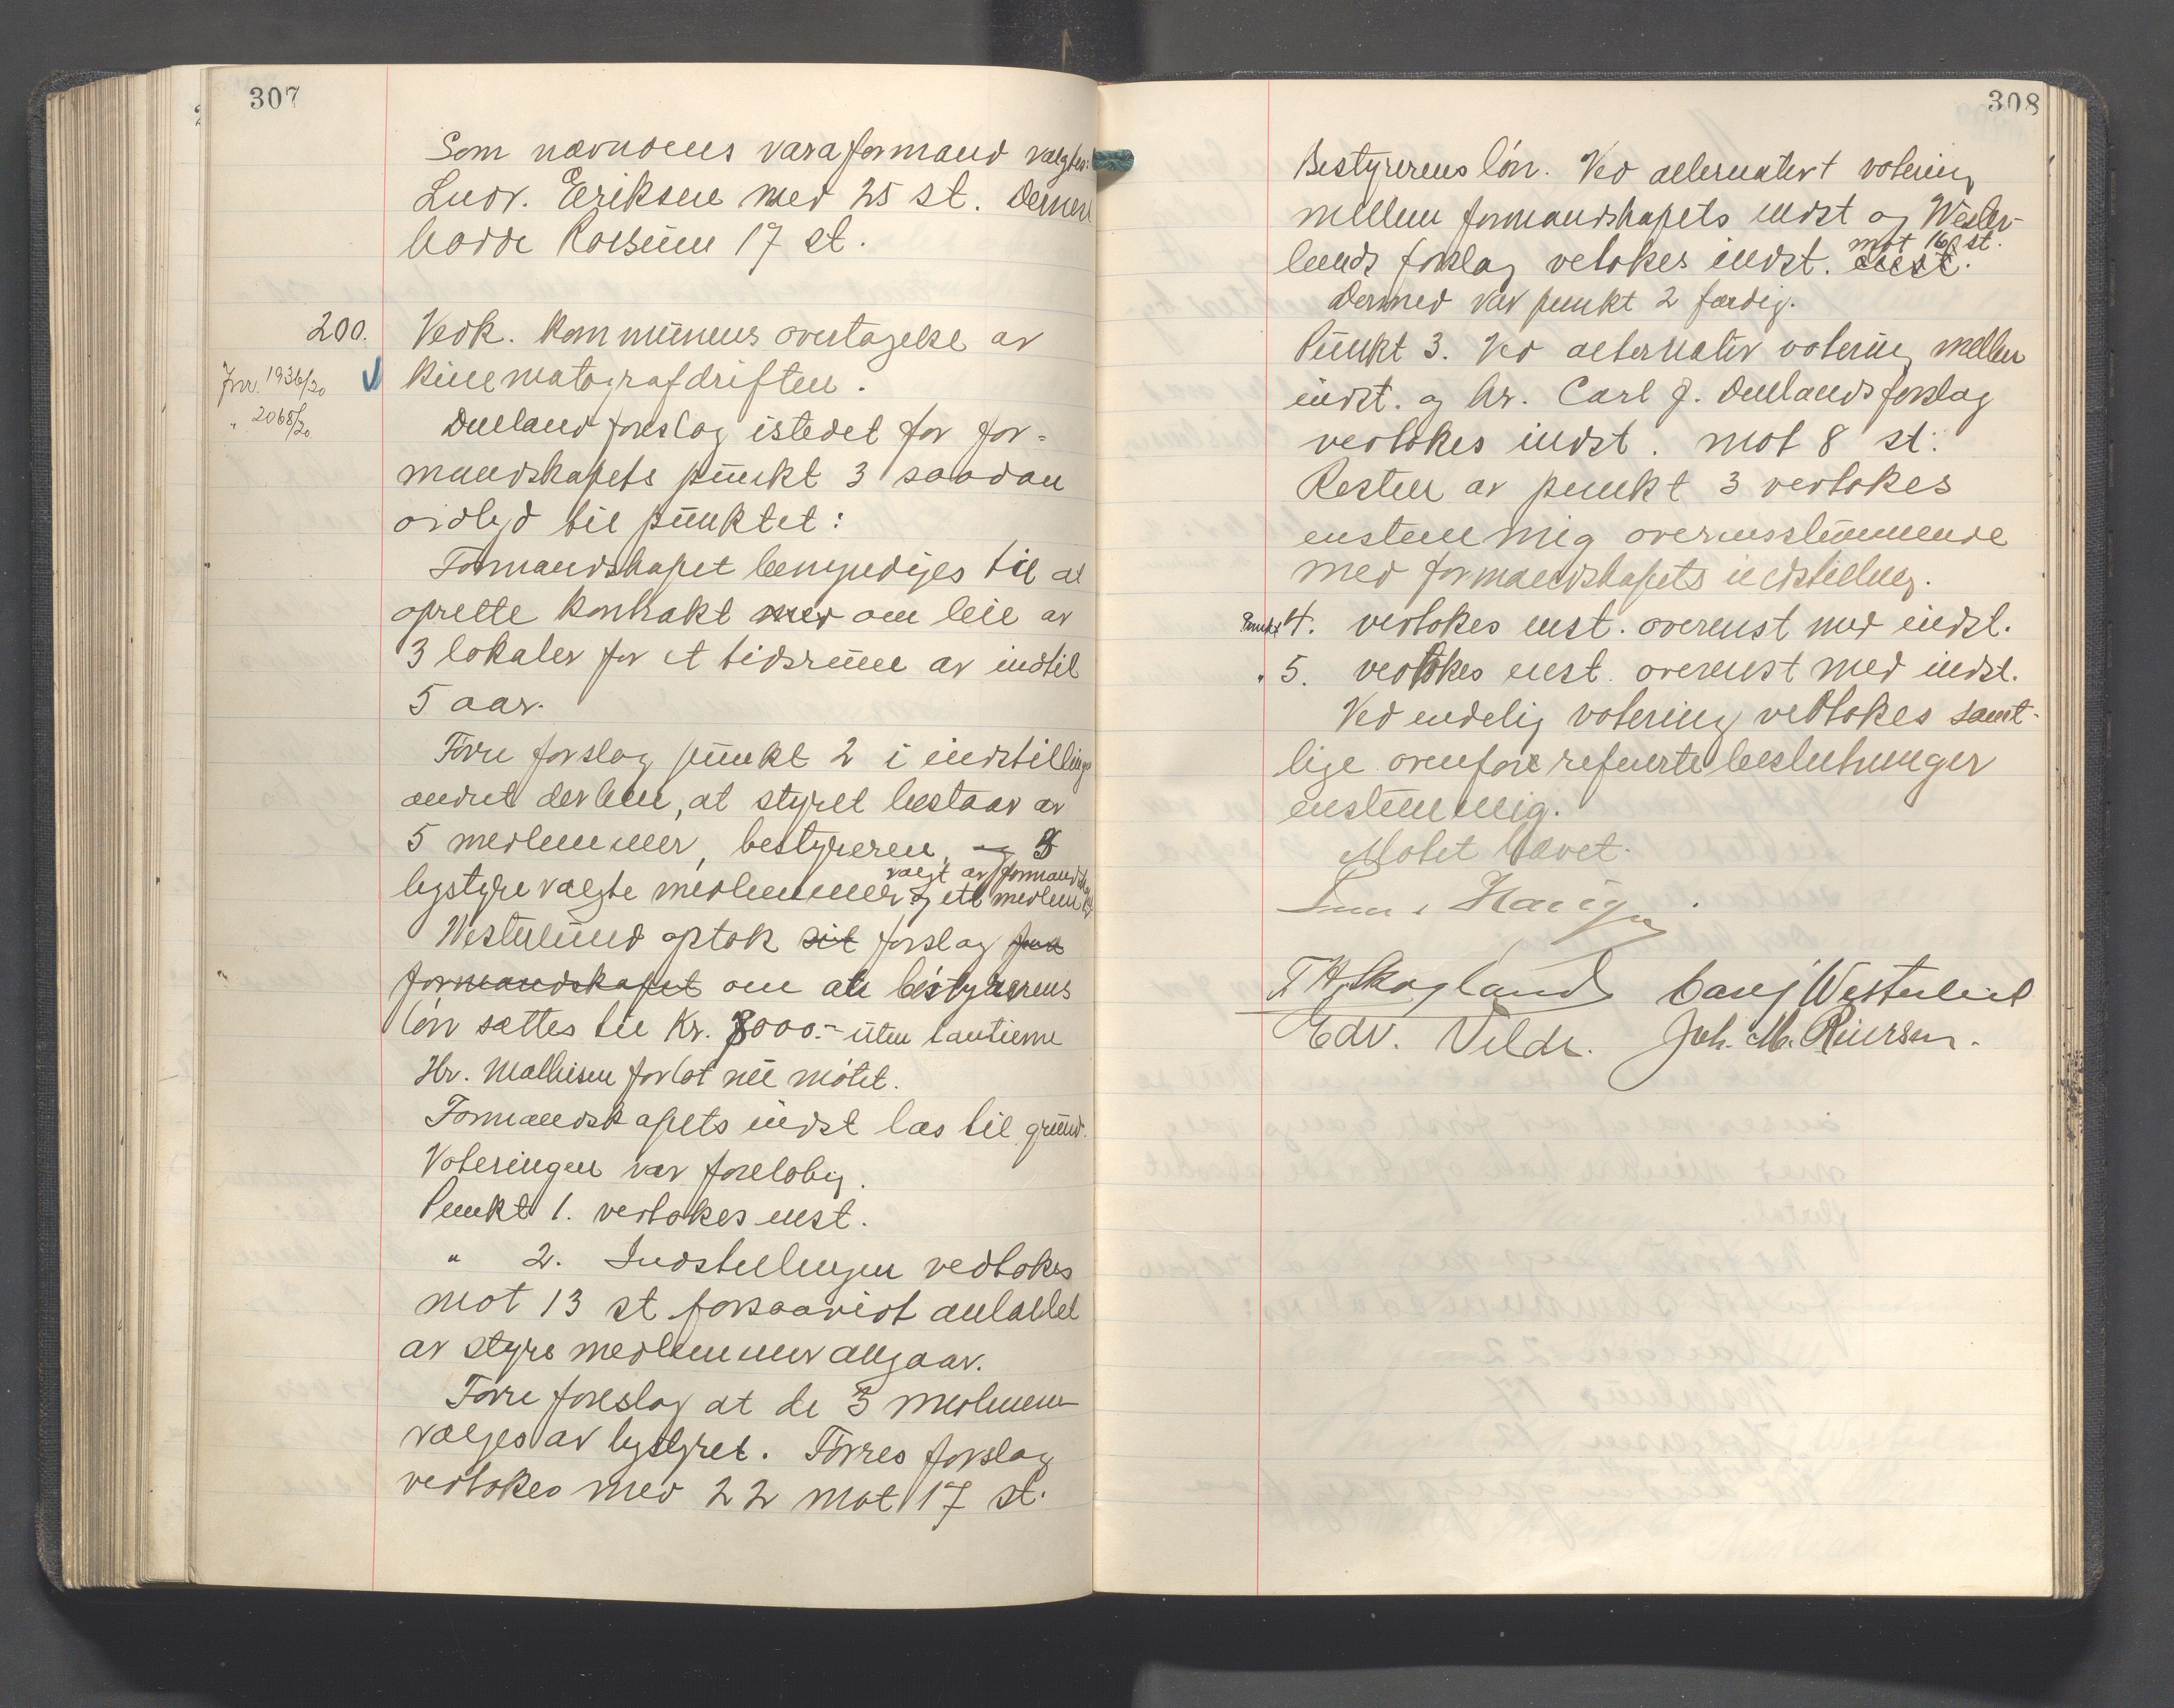 307
Som nævndens varaformand valgtes:
Ludv. Eeriksen med 25 st. Dernest
hadde Rossum 17 st.
200. Vedk. kommunens overtagelse av
Jnr. 1936/20 kinematografdriften.
" 2068/20
Dueland foreslog istedet for for-
mandskapets punkt 3 saadan
ordlyd til punktet:
Formandskapet bemyndiges til at
oprette kontrakt med om leie av
3 lokaler for et tidsrum av indtil
5 aar.
Torre forslog punkt 2 i indstillings
ændret derhen, at styret bestaar av
5 medlemmer, bestyreren, og 3
valgt av formandskap
bystyrevalgte medlemmer og ett medlem
Westerlund optok sit forslag fra
formandskapet om at bestyrerens
løn sættes til Kr. 8000.- uten tantieme
Hr. Mathisen forlot nu møtet.
Formandskapets indst laa til grund.
Voteringen var foreløbig.
Punkt 1. vedtokes enst.
" 2. Indstillingen vedtokes
mot 13 st forsaavidt antallet
av styremedlemmer angaar.
Torre foreslog at de 3 medlemmer
vælges av bystyret. Torres forslag
vedtokes med 22 mot 17 st.
308
Bestyrerens løn. Ved alternativt votering
mellem formandskapets indst og Wester-
mot 16 st.
lunds forslag vetokes indst. enst.
Dermed var punkt 2 færdig.
Punkt 3. Ved alternativ votering mellem
indst. og hr. Carl J. Duelands forslag
vedtokes indst. mot 8 st.
Resten av punkt 3 vedtokes
enstemmig overensstemmende
med formandskapets indstilling.
Punkt 4. vedtokes enst. overenst med indst.
" 5. vedtokes enst. overenst med indst.
Ved endelig votering vedtokes samt-
lige ovenfor refererte beslutninger
enstemmig.
Møtet hævet.
T. H. Skogland Carl J Westerlund
Edv. Velde. Joh. M. Riversen.